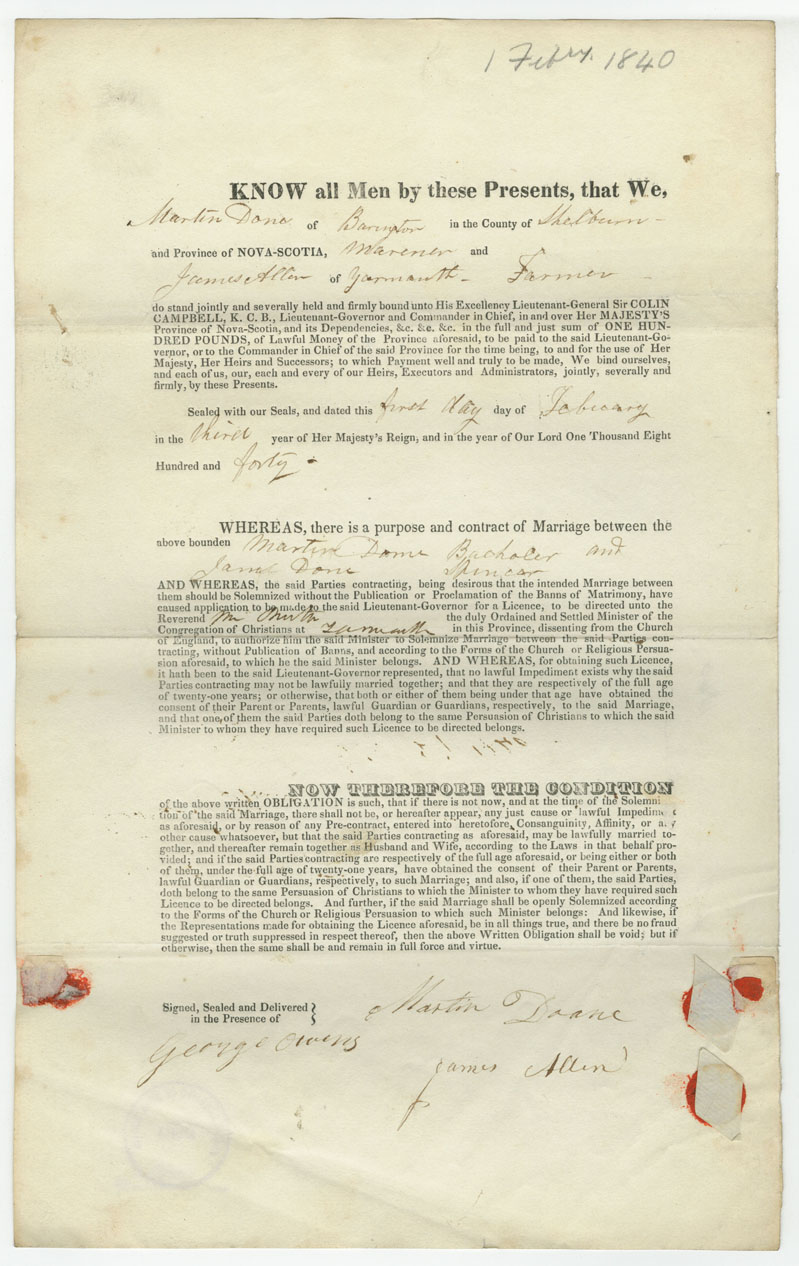 1 Febry. 1840
KNOW all Men by these Presents, that We,
Martin Done of Barington in the County of Shelburn -
and Province of NOVA-SCOTIA, Marener and
James Allen of Yarmouth - Farmer -
do stand jointly and severally held and firmly bound unto His Excellency Lieutenant-General Sir COLIN
CAMPBELL, K. C. B., Lieutenant-Governor and Commander in Chief, in and over Her MAJESTY'S
Province of Nova-Scotia, and its Dependencies, &c. &c. &c. in the full and just sum of ONE HUN-
DRED POUNDS, of Lawful Money of the Province aforesaid, to be paid to the said Lieutenant-Go-
vernor, or to the Commander in Chief of the said Province for the time being, to and for the use of Her
Majesty, Her Heirs and Successors; to which Payment well and truly to be made, We bind ourselves,
and each of us, our, each and every of our Heirs, Executors and Administrators, jointly, severally and
firmly, by these Presents.
Sealed with our Seals, and dated this first day day of February
in the third year of Her Majesty's Reign, and in the year of Our Lord One Thousand Eight
Hundred and forty -
WHEREAS, there is a purpose and contract of Marriage between the
above bounden Martin Done Bacholer and
Jane Done Spincar
AND WHEREAS, the said Parties contracting, being desirous that the intended Marriage between
them should be Solemnized without the Publication or Proclamation of the Banns of Matrimony, have
caused application to be made to the said Lieutenant-Governor for a Licence, to be directed unto the
Reverend Mr the duly Ordained and Settled Minister of the
Congregation of Christians at Yarmouth in this Province, dissenting from the Church
of England, to authorize him the said Minister to Solemnize Marriage between the said Parties con-
tracting, without Publication of Banns, and according to the Forms of the Church or Religious Persua-
sion aforesaid, to which he the said Minister belongs. AND WHEREAS, for obtaining such Licence,
it hath been to the said Lieutenant-Governor represented, that no lawful Impediment exists why the said
Parties contracting may not be lawfully married together; and that they are respectively of the full age
of twenty-one years; or otherwise, that both or either of them being under that age have obtained the
consent of their Parent or Parents, lawful Guardian or Guardians, respectively, to the said Marriage,
and that one of them the said Parties doth belong to the same Persuasion of Christians to which the said
Minister to whom they have required such Licence to be directed belongs.
NOW THEREFORE THE CONDITION
of the above written OBLIGATION is such, that if there is not now, and at the time of the Solemni
tion of the said Marriage, there shall not be, or hereafter appear, any just cause or lawful Impedim t
as aforesaid, or by reason of any Pre-contract, entered into heretofore, Consanguinity, Affinity, or a
other cause whatsoever, but that the said Parties contracting as aforesaid, may be lawfully married to-
gether, and thereafter remain together as Husband and Wife, according to the Laws in that behalf pro-
vided; and if the said Parties contracting are respectively of the full age aforesaid, or being either or both
of them, under the full age of twenty-one years, have obtained the consent of their Parent or Parents,
lawful Guardian or Guardians, respectively, to such Marriage; and also, if one of them, the said Parties,
doth belong to the same Persuasion of Christians to which the Minister to whom they have required such
Licence to be directed belongs. And further, if the said Marriage shall be openly Solemnized according
to the Forms of the Church or Religious Persuasion to which such Minister belongs: And likewise, if
the Representations made for obtaining the Licence aforesaid, be in all things true, and there be no fraud
suggested or truth suppressed in respect thereof, then the above Written Obligation shall be void; but if
otherwise, then the same shall be and remain in full force and virtue.
Signed, Sealed and Delivered }
in the Presence of }
Martin Doane
George Owens
James Allen